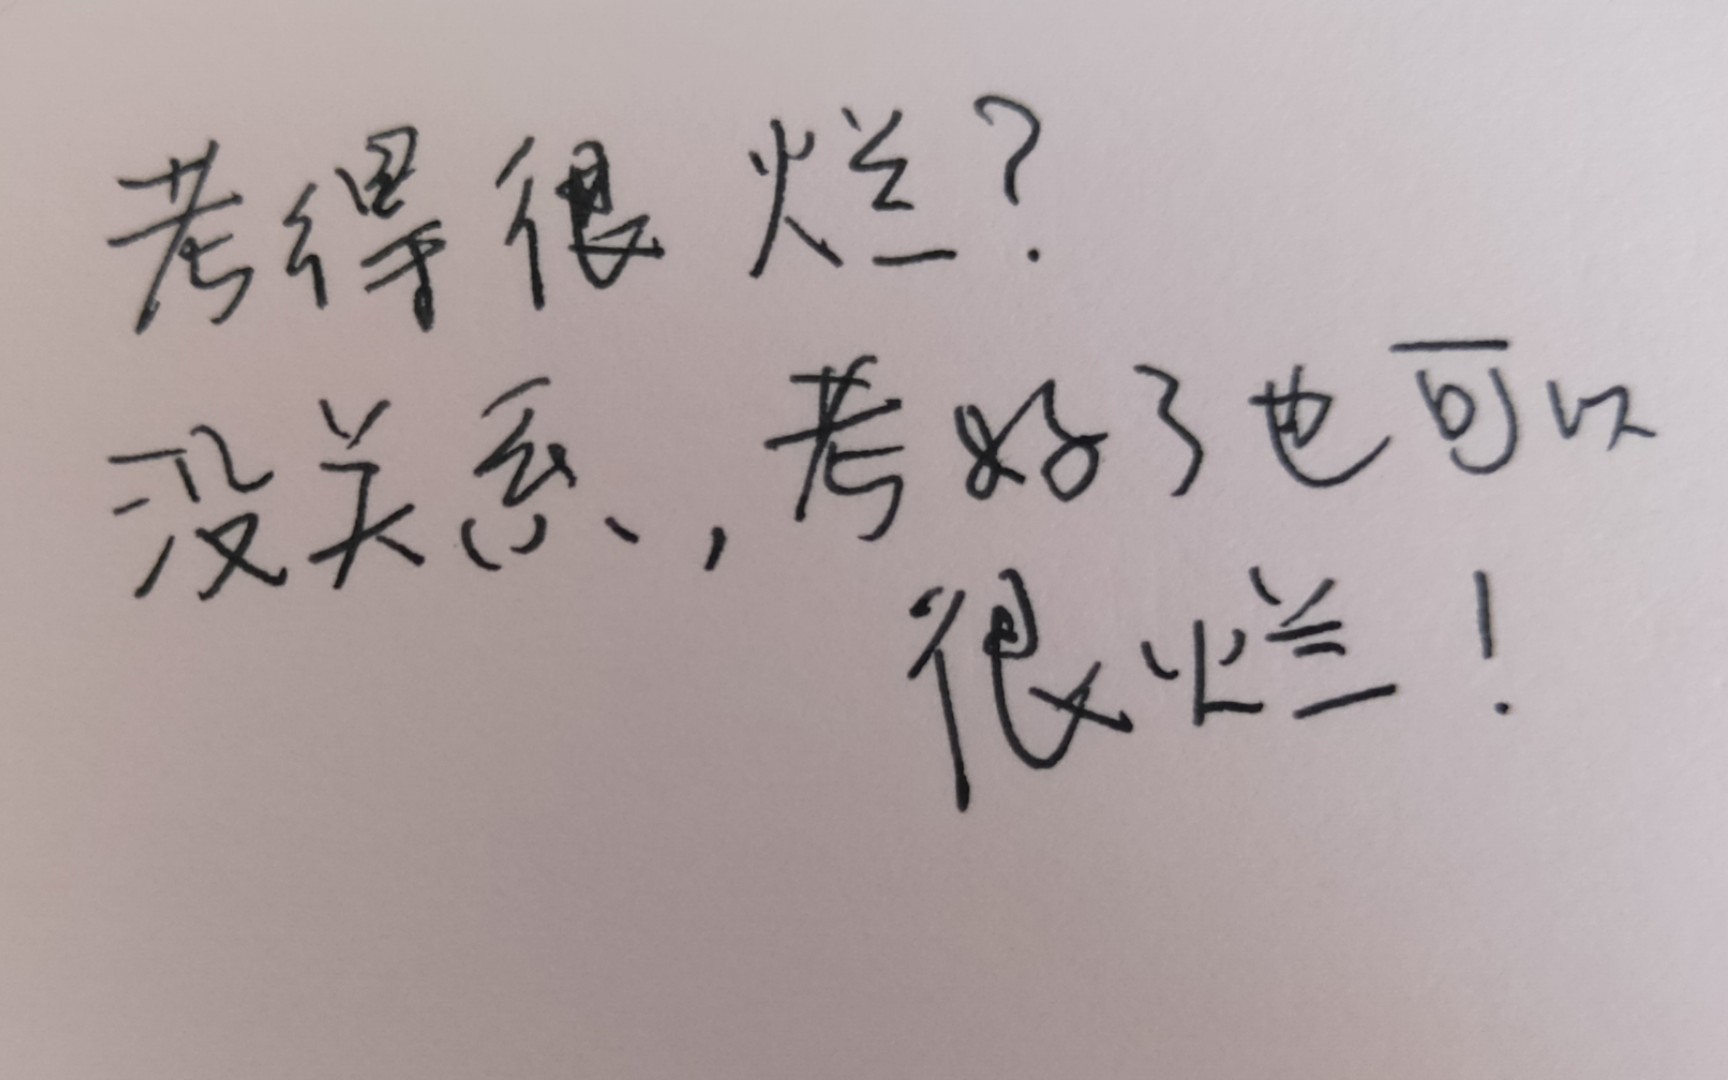 考得很烂?
没关系,考好了也可以
很烂!